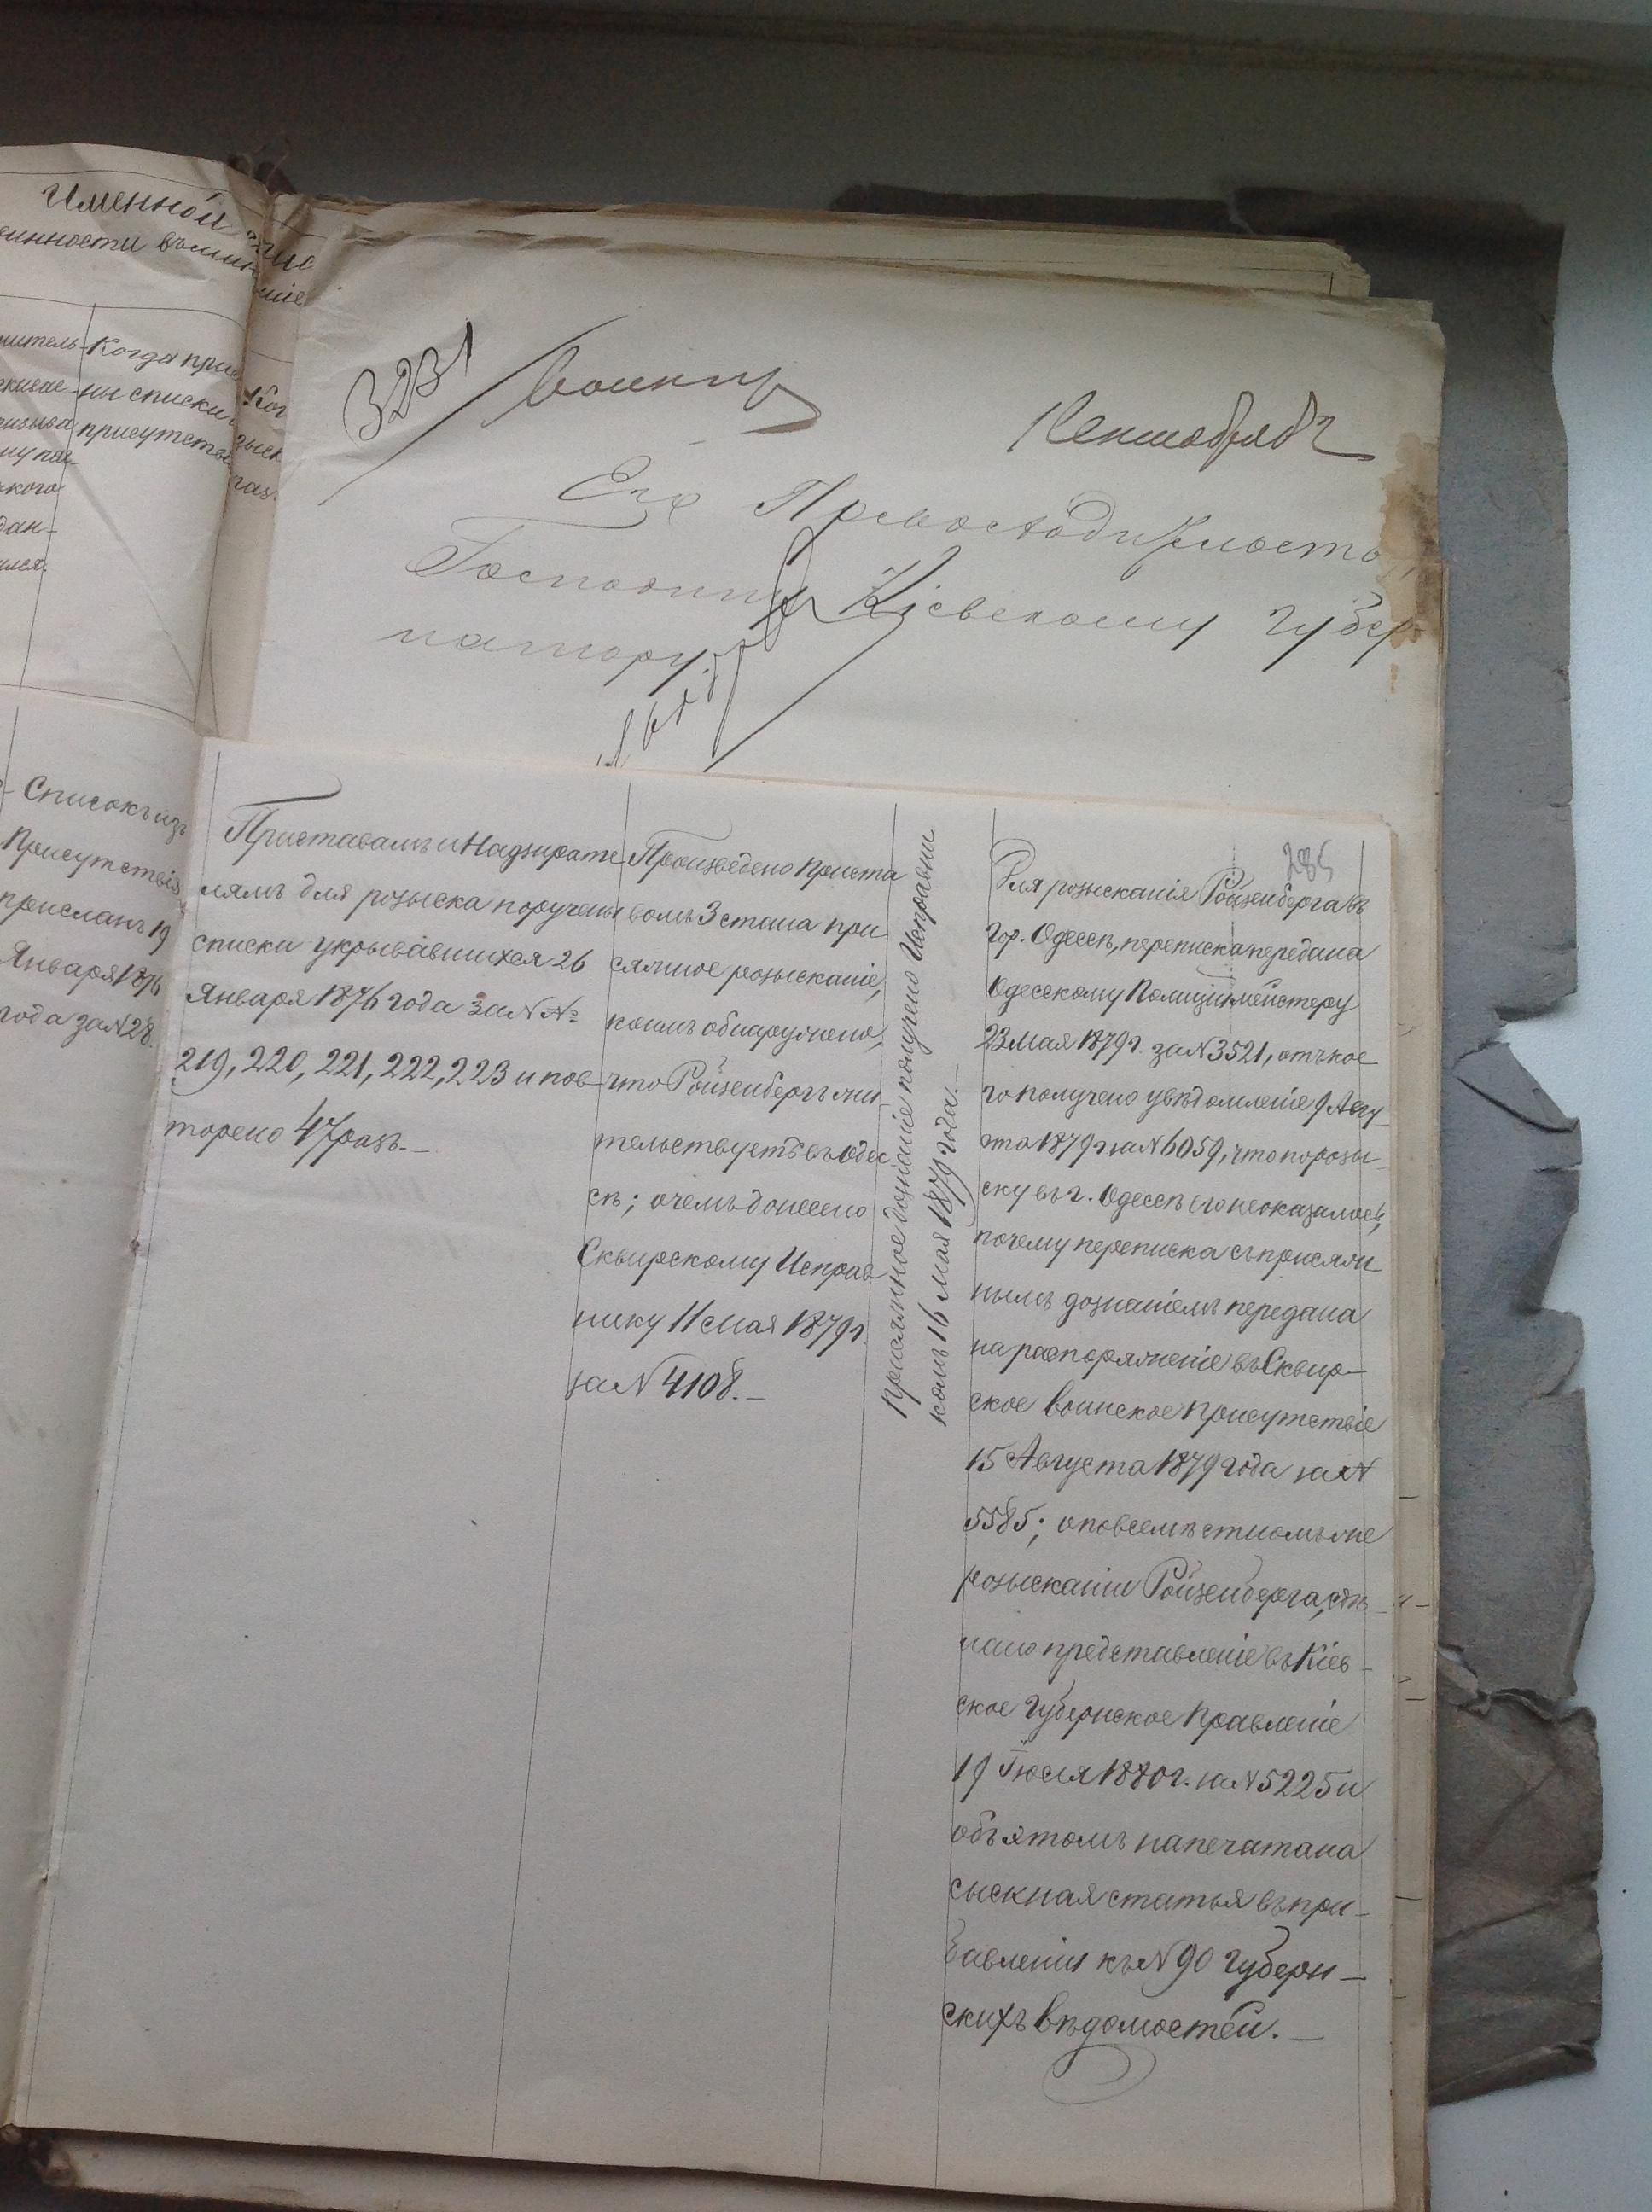 Именной
Когда при
ны списки
присутств
3231
воинкир
Его Превосходительство,
Господину Кіевскому Губер-
натору.
285
Списокъ изъ
Присутствія
присланъ 19
Января 1876
года за N 28.
Приставамъ и Надзирате
лямъ для розыска поручены
списки укрывавшихся 26
Января 1876 года за N №
219, 220, 221, 222, 223 и пов-
торено 47 разъ.-
Произведено Приста
вомъ 3 стана при
сяжное розысканіе,
коимъ обнаружено,
что Ройзенбергъ жи-
тельствуетъ въ Одес
сѣ; о чемъ донесено
Сквирскому Исправ
нику 11 Мая 1879 г.
за N 4108.-
Присяжное дознаніе получено Исправни
комъ 16 Мая 1879 года.-
Для розысканія Ройзенберга въ
гор. Одессѣ, переписка передана
Одесскому Полицмейстеру
23 Мая 1879 г. за N 3521, отъ кое-
го получено увѣдомленіе 9 Авгу-
ста 1879 г. за N 6059, что по розы-
ску въ г. Одессѣ его неоказалось,
почему переписка съ присяж-
нымъ дознаніемъ передана
на распоряженіе въ Сквир-
ское воинское Присутствіе
15 Августа 1879 года за N
5585; о повсемѣстномъ же
розысканіи Ройзенберга, сдѣ-
лано представленіе въ Кіев-
ское Губернское Правленіе
19 Іюля 1880 г. за N 5225 и
объ этомъ напечатана
сыскная статья въ при-
бавленіи къ N 90 Губерн-
скихъ Вѣдомостей.-